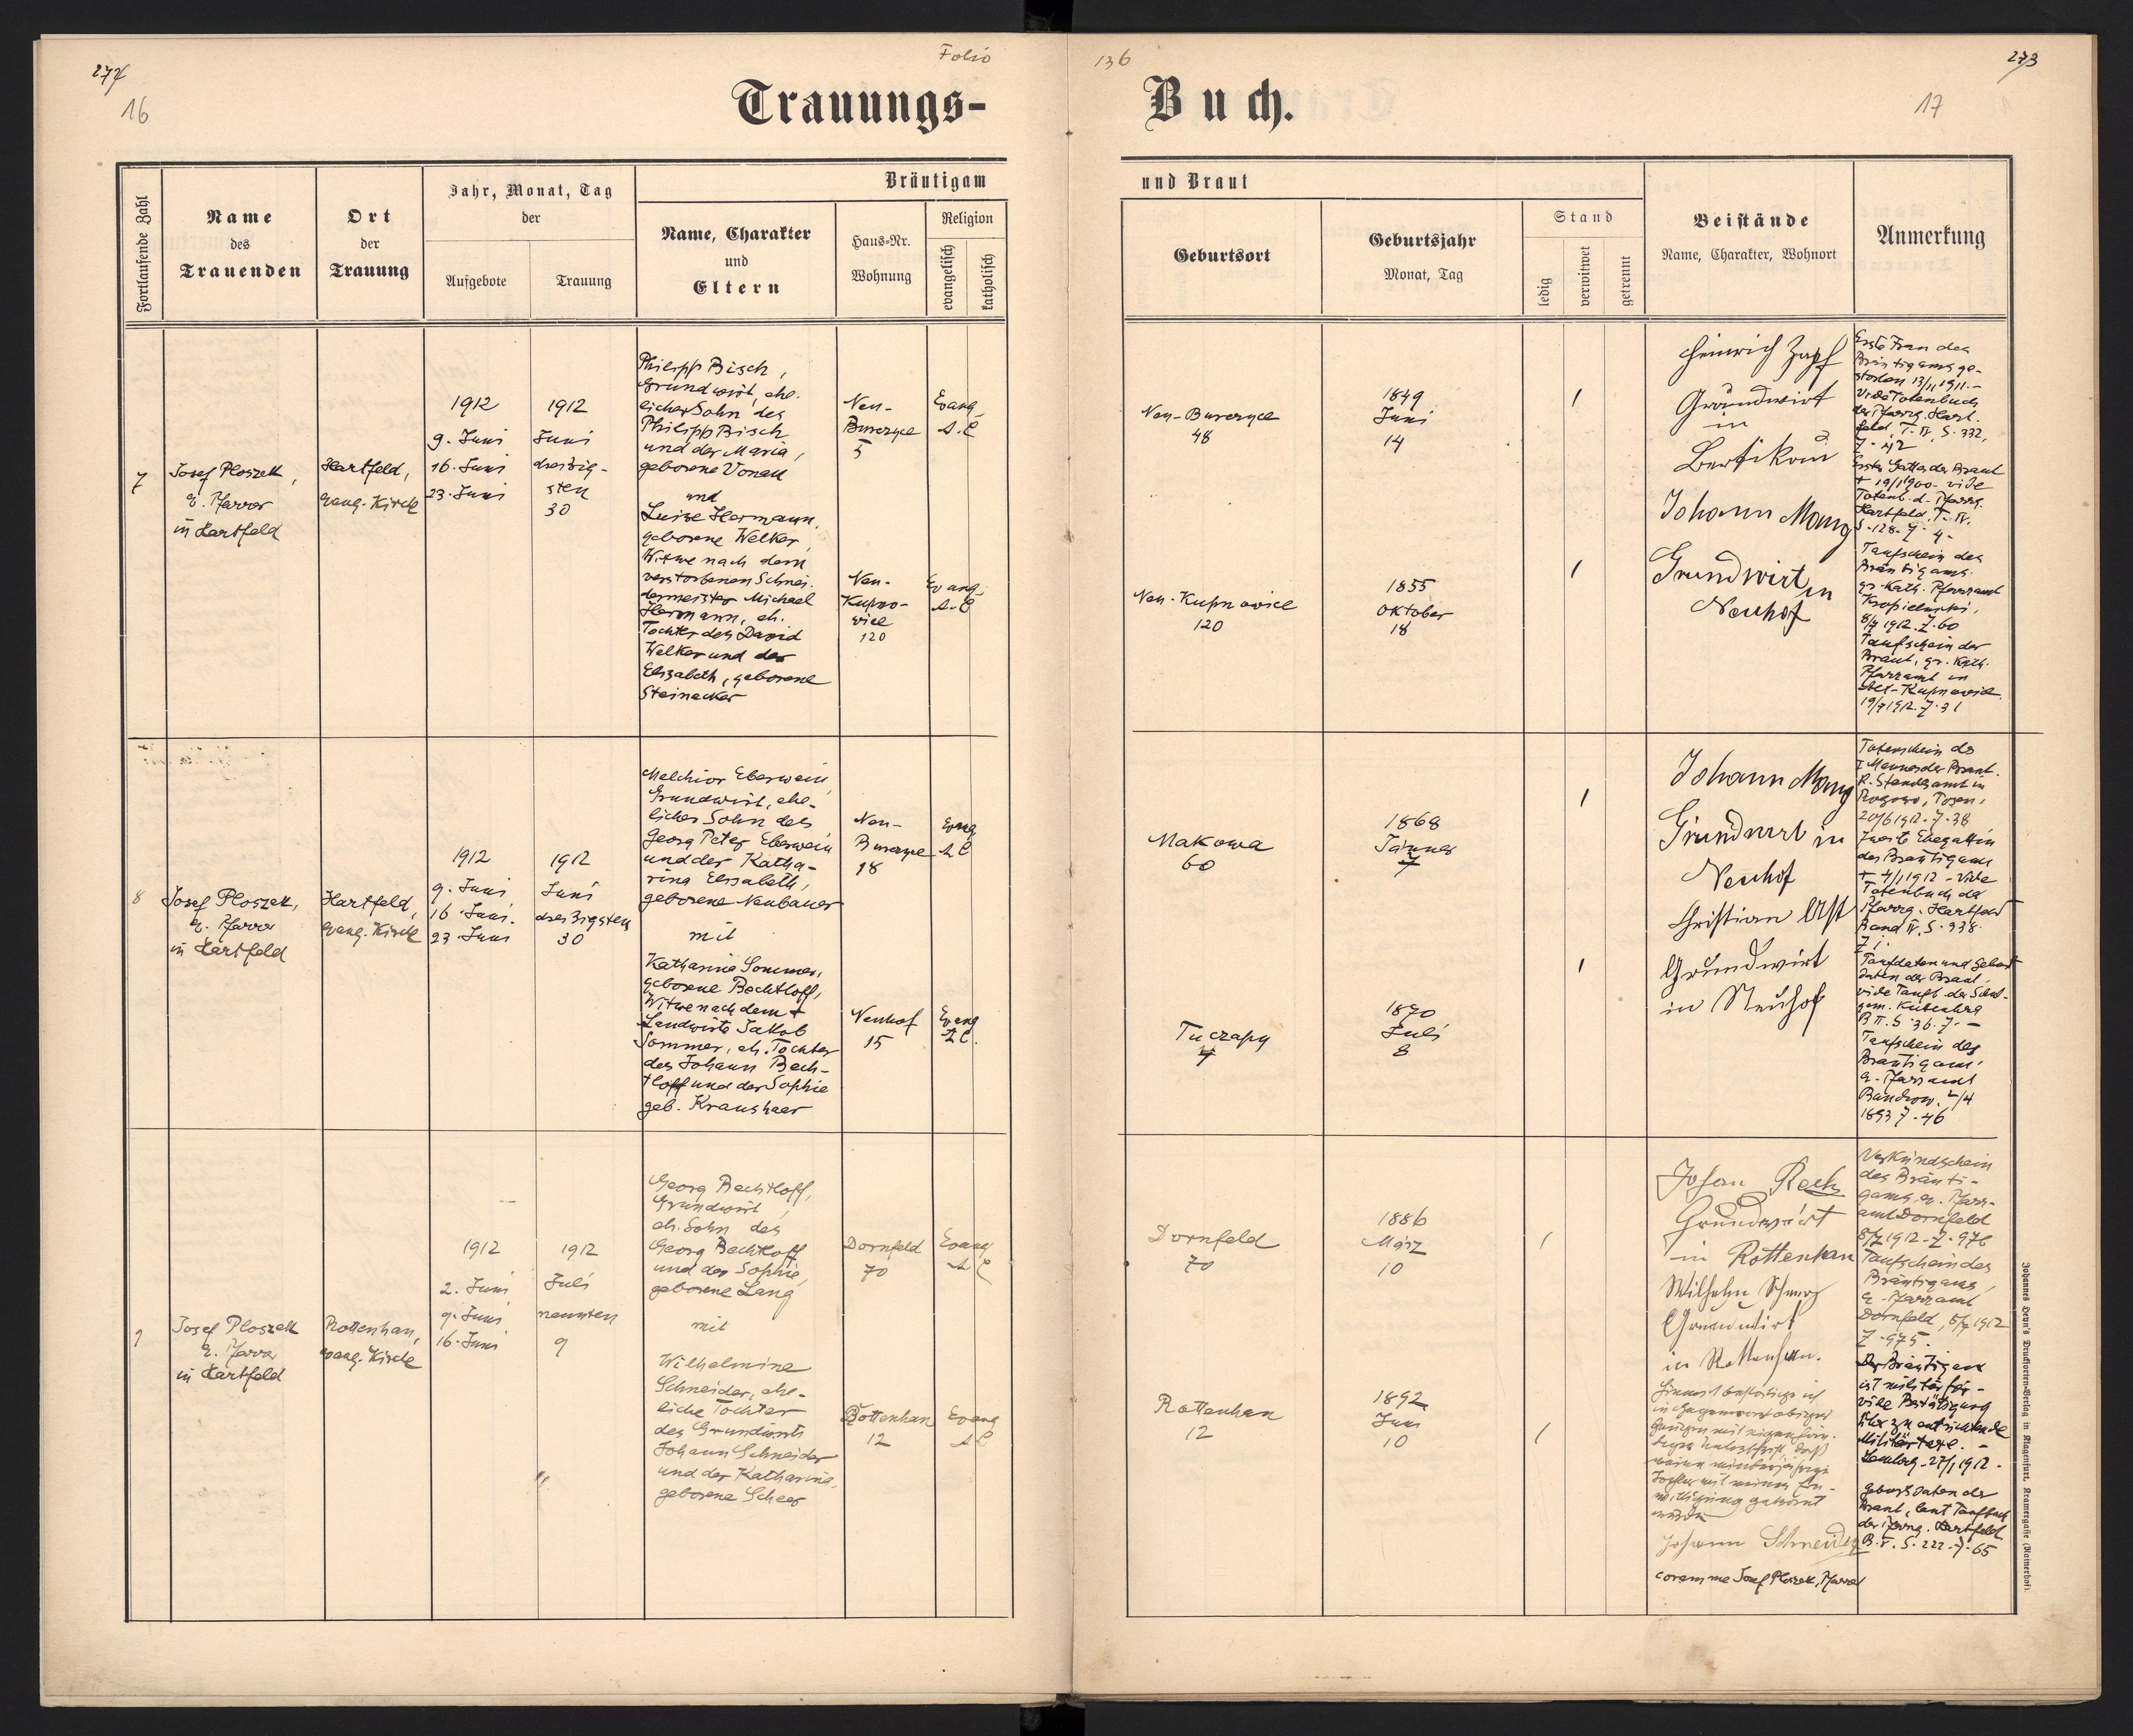 272
16
Folio
Trauungs-
Fortlaufende Zahl
Name
des
Trauenden
Ort
der
Trauung
Jahr, Monat, Tag
der
Aufgebote
Trauung
Bräutigam
Name, Charakter
und
Eltern
Haus-Nr.
Wohnung
Religion
evangelisch
katholisch
7
Josef Ploszek,
e. Pfarrer
in Hartfeld
Hartfeld,
evang. Kirche
1912
9. Juni
16. Juni
23. Juni
1912
Juni
dreizig-
sten
30
Philipp Bisch,
Grundwirt, ehe-
licher Sohn des
Philipp Bisch
und der Maria,
geborene Vonau
und
Luise Hermann,
geborene Welker,
Witwe nach dem
verstorbenen Schnei-
dermeister Michael
Hermann, eh.
Tochter des David
Welker und der
Elisabeth, geborene
Steinacker
Neu-
Burczyce
5
Evang.
A.C
Neu-
Kupno-
wice
120
Evang.
A.C
8
Josef Ploszek,
e. Pfarrer
in Hartfeld
Hartfeld,
evang. Kirche
1912
9. Juni
16. Juni.
23. Juni
1912
Juni
dreizigsten
30
Melchior Eberwein,
Grundwirt, ehe-
licher Sohn des
Georg Peter Eberwein
und der Katha-
rina Elisabeth,
geborene Neubauer
mit
Katharina Sommer,
geborene Bechtloff,
Witwe nach dem +
Landwirte Jakob
Sommer, eh. Tochter
des Johann Bech-
tloff und der Sophie
geb. Kraushaar
Neu-
Burczyce
18
Evang
A C
Neuhof
15
Evang
A C.
9
Josef Ploszek
e. Pfarrer
in Hartfeld
Rottenhan,
evang. Kirche
1912
2. Juni
9. Juni
16. Juni
1912
Juli
neunten
9
Georg Bechtloff,
Grundwirt,
eh. Sohn des
Georg Bechtloff
und der Sophie,
geborene Lang
mit
Wilhelmine
Schneider, ehe-
liche Tochter
des Grundwirts
Johann Schneider
und der Katharina,
geborene Scheer
Dornfeld
70
Evang
A C
Rottenhan
12
Evang
A C
136
273
17
Buch.
und Braut
Geburtsort
Geburtsjahr
Monat, Tag
Stand
ledig
verwitwet
getrennt
Beistände
Name, Charakter, Wohnort
Anmerkung
Neu-Burczyce
48
1849
Juni
14
Neu-Kupnowice
120
1855
Oktober
18
Heinrich Zapf
Grundwirt
in
Johann Mang
Grundwirt in
Neuhof
Erste Frau des
Bräutigams ge-
storben 13/11 1911.-
vide Totenbuch
der Pfarrg. Hart-
feld, T. IV, S. 332,
Z. 42
Erster Gatte der Braut
+ 19/1 1900- vide
Totenb. d. Pfarrg.
Hartfeld, T. IV.
S. 128. Z. 4-
Taufschein des
Bräutigams:
gr. Kath. Pfarramt
8/7 1912. Z. 60
Taufschein der
Braut, gr. Kath.
Pfarramt in
19/7 1912. Z. 31
Makowa
60
1868
Jänner
7
Tuczapy
4
1870
Juli
8
Johann Mang
Grundwirt in
Neuhof
Christian Ast
Grundwirt
in Neuhof
Totenschein des
I Mannes der Braut.
K. Standesamt in
Rogowo, Posen,
20/6 1912. Z. 38
Zweite Ehegattin
des Bräutigams
+ 4/1 1912 - vide
Totenbuch der
Pfarrg. Hartfeld
Band IV, S. 338.
Z 1.
Taufdaten und Geburts-
daten der Braut,
B II. S. 36. Z. -
Taufschein des
Bräutigams:
e. Pfarramt
Bandrow. 2/4
1893 Z. 46
Dornfeld
70
1886
März
10
Rottenhan
12
1892
Juni
10
Grundwirt
in Rottenhan
Wilhelm
Grundwirt
in Rottenhan.
Hiermit bestätige ich
in Gegenwart obiger
Zeugen mit eigenhän-
diger Unterschrift, daß
meine minderjährige
Tochter mit meiner Ein-
willigung getraut
wurde
Johann Schneider
coram me Josef Ploszek, Pfarrer
Verkündschein
des Bräuti-
gams, e. Pfarr-
amt Dornfeld
8/7 1912 - Z. 976
Taufschein des
Bräutigams,
e. Pfarramt
Dornfeld, 8/7 1912
Z. 975.
Der Bräutigam
ist militärfrei -
vide Bestätigung
über zu entrichtende
Militärtaxe. -
Lemberg - 27/1 1912 -
Geburtsdaten der
Braut, laut Taufbuch
der Pfarrg. Hartfeld
B. V. S. 222. Z. 65
Johannes Heyn's Drucksorten-Verlag in Klagenfurt, Kramergasse (Rainerhof).